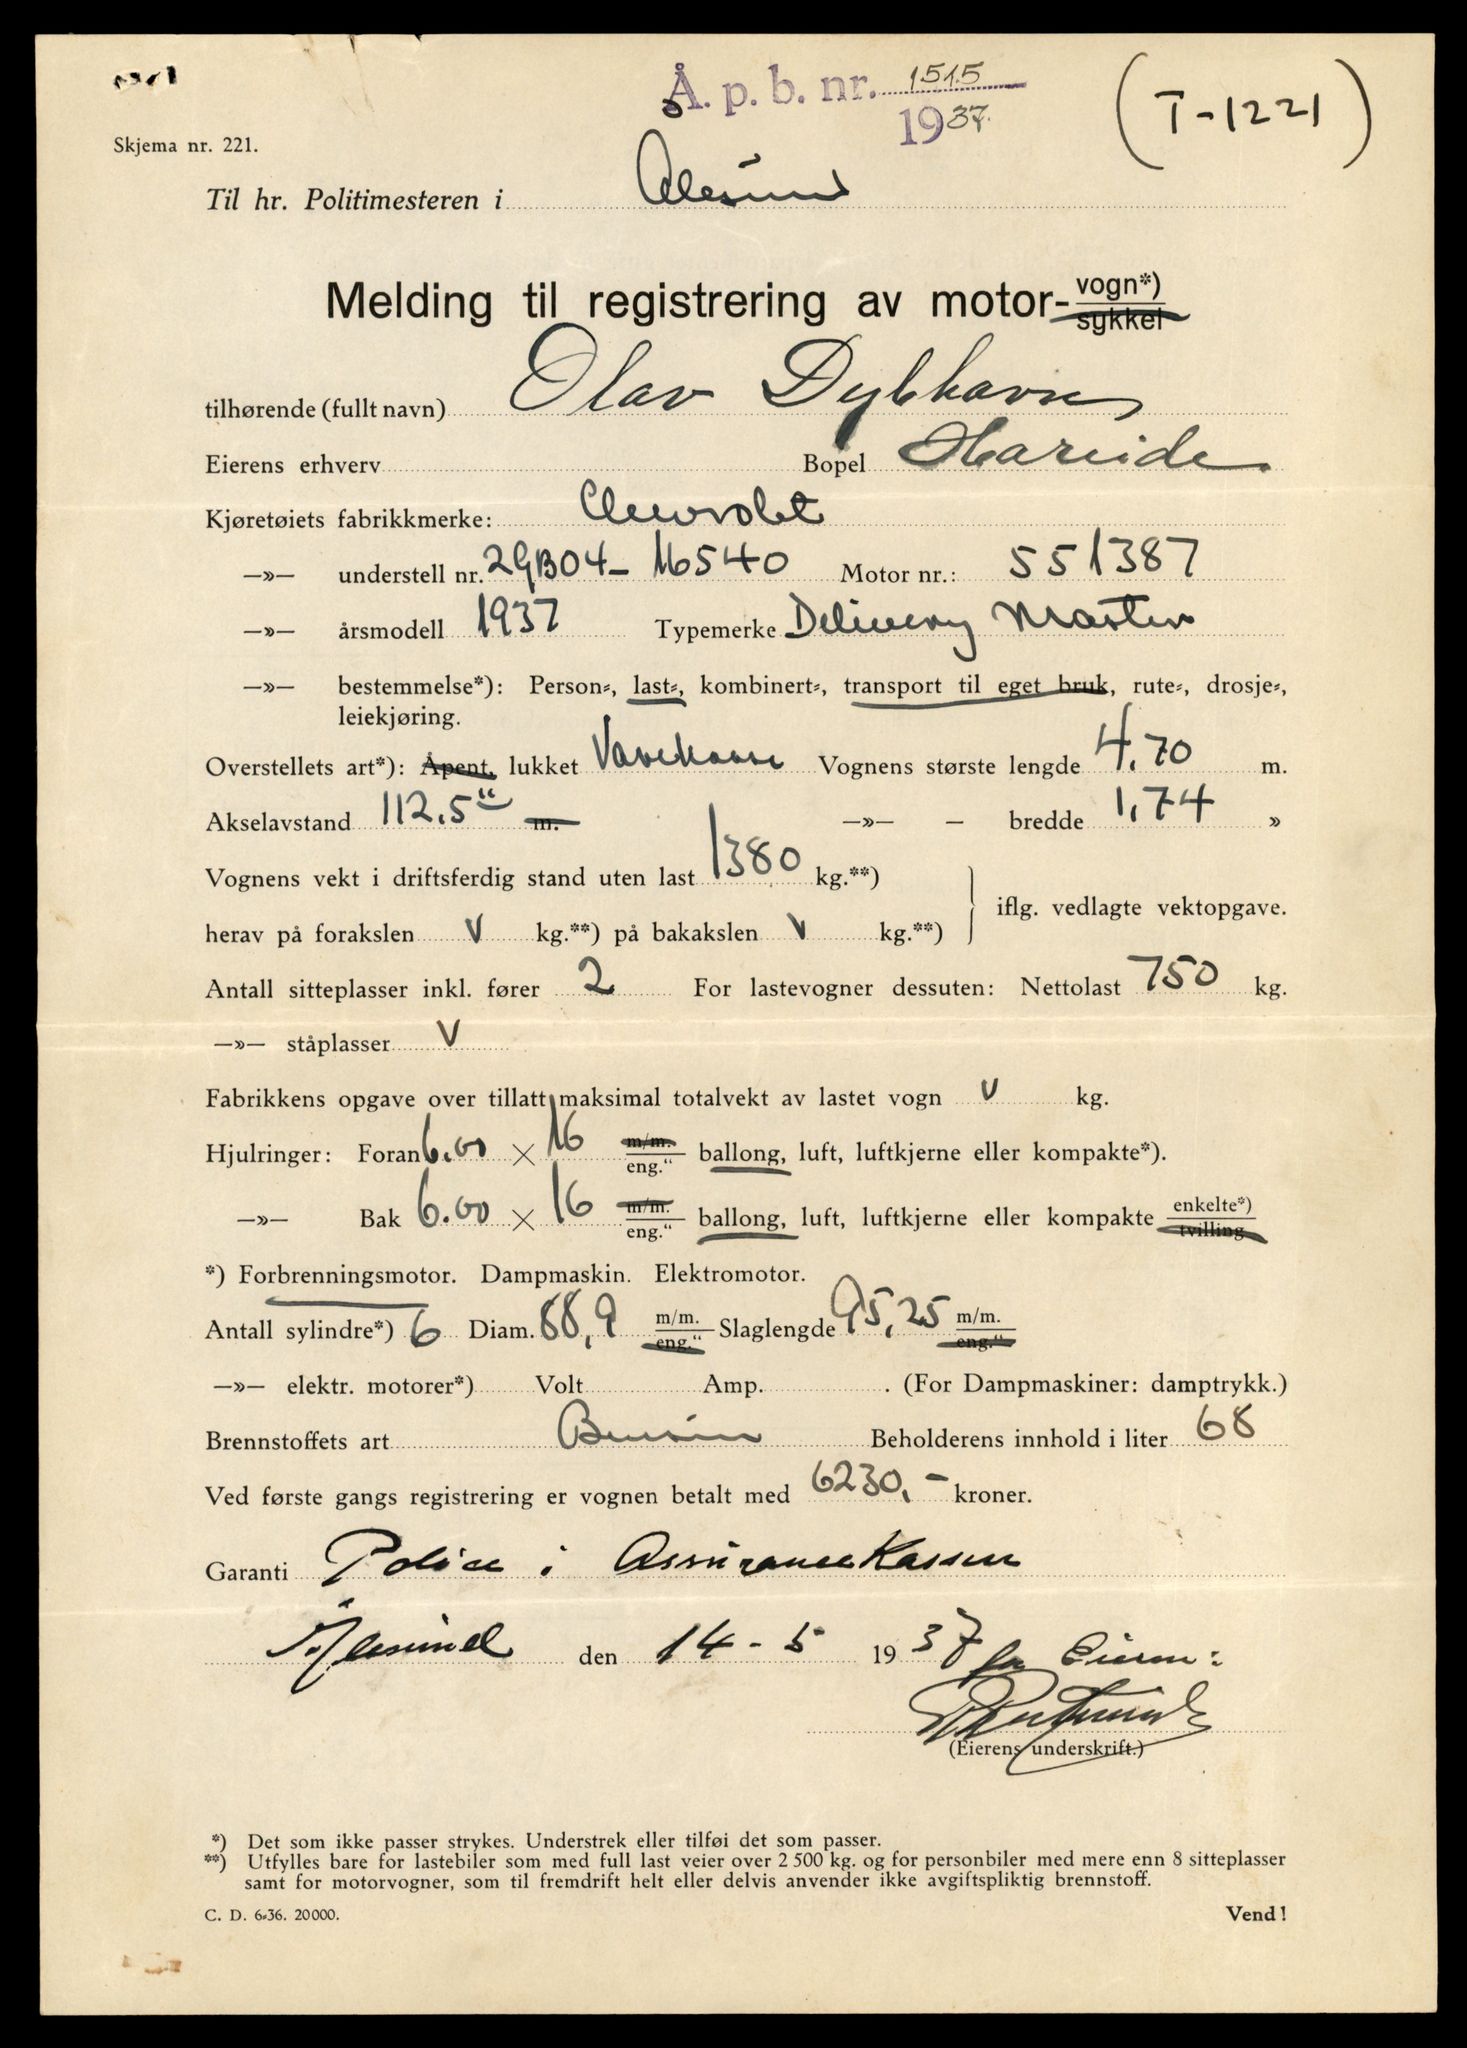 Å. p. b. nr. 1515
1937.
(T-1221)
Skjema nr. 221.
Til hr. Politimesteren i Ålesund
Melding til registrering av motor-vogn*)
sykkel
tilhørende (fullt navn) Olav Dybhavn
Eierens erhverv Bopel Hareide
Kjøretøiets fabrikkmerke: Chevrolet
—»— understell nr. 2GB04- 16540 Motor nr.: 551387
—»— årsmodell 1937 Typemerke Delivery Master
—»— bestemmelse*): Person-, last-, kombinert-, transport til eget bruk, rute-, drosje-,
leiekjøring.
Overstellets art*): Åpent, lukket Varekasse Vognens største lengde 4,70 m.
Akselavstand 112,5" m. —»— — bredde 1,74 »
Vognens vekt i driftsferdig stand uten last 1380 kg.**)
iflg. vedlagte vektopgave.
herav på forakslen V kg.**) på bakakslen V kg.**)
Antall sitteplasser inkl. fører 2 For lastevogner dessuten: Nettolast 750 kg.
—»— ståplasser V
Fabrikkens opgave over tillatt maksimal totalvekt av lastet vogn V kg.
Hjulringer: Foran 6.00 × 16 m/m. eng.“ ballong, luft, luftkjerne eller kompakte*).
—»— Bak 6.00 × 16 m/m. eng.“ ballong, luft, luftkjerne eller kompakte enkelte*) tvilling
*) Forbrenningsmotor. Dampmaskin. Elektromotor.
Antall sylindre*) 6 Diam. 88,9 m/m. eng.“ Slaglengde 95,25 m/m. eng.“
—»— elektr. motorer*) Volt Amp. . (For Dampmaskiner: damptrykk.)
Brennstoffets art Bensin Beholderens innhold i liter 68
Ved første gangs registrering er vognen betalt med 6230,- kroner.
Garanti Police i Assurancekassen
Ålesund den 14-5 1937 for Eieren:
(Eierens underskrift.)
*) Det som ikke passer strykes. Understrek eller tilføi det som passer.
**) Utfylles bare for lastebiler som med full last veier over 2 500 kg. og for personbiler med mere enn 8 sitteplasser
samt for motorvogner, som til fremdrift helt eller delvis anvender ikke avgiftspliktig brennstoff.
C. D. 6-36. 20000.
Vend!